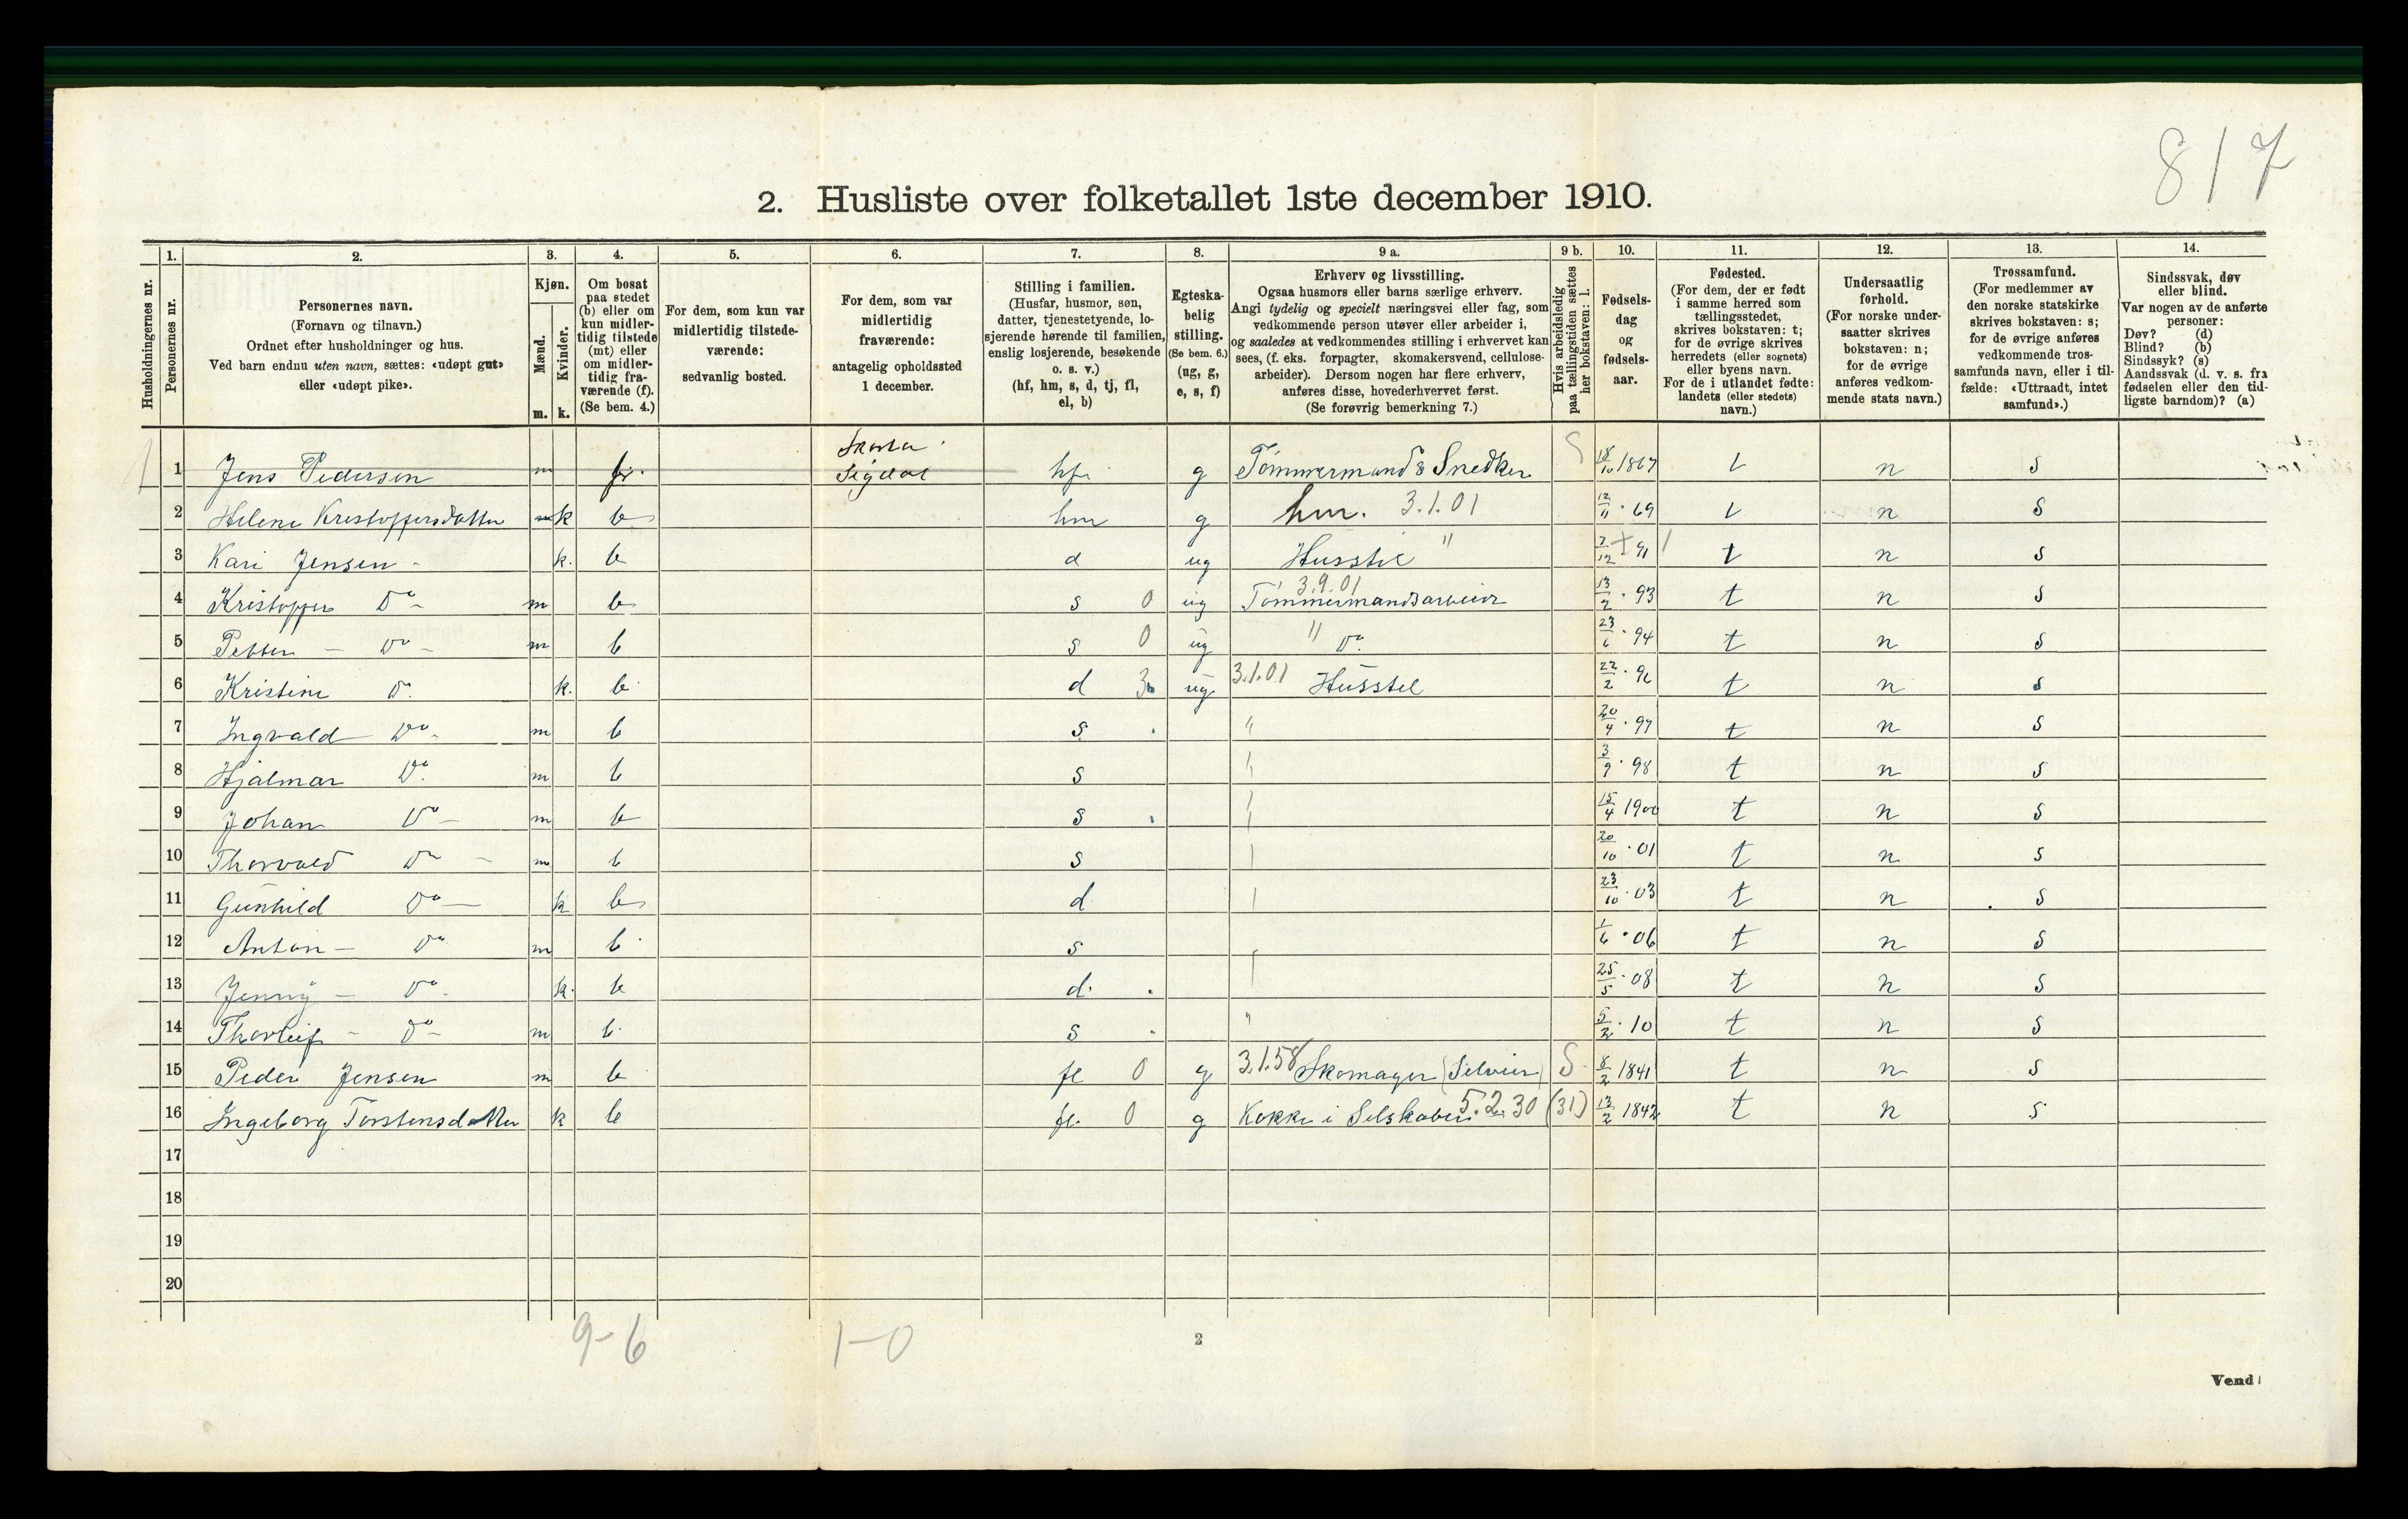 817
2. Husliste over folketallet 1ste december 1910.
Husholdningernes nr.
1. Personernes nr.
2. Personernes navn. (Fornavn og tilnavn.) Ordnet efter husholdninger og hus. Ved barn endnu uten navn, sættes: «udøpt gut» eller «udøpt pike».
3. Kjøn. Mænd. m. Kvinder. k.
4. Om bosat paa stedet (b) eller om kun midlertidig tilstede (mt) eller om midlertidig fraværende (f). (Se bem. 4.)
5. For dem, som kun var midlertidig tilstedeværende: sedvanlig bosted.
6. For dem, som var midlertidig fraværende: antagelig opholdssted 1 december.
7. Stilling i familien. (Husfar, husmor, søn, datter, tjenestetyende, losjerende hørende til familien, enslig losjerende, besøkende o. s. v.) (hf, hm, s, d, tj, fl, el, b)
8. Egteskabelig stilling. (Se bem. 6.) (ug, g, e, s, f)
9 a. Erhverv og livsstilling. Ogsaa husmors eller barns særlige erhverv. Angi tydelig og specielt næringsvei eller fag, som vedkommende person utøver eller arbeider i, og saaledes at vedkommendes stilling i erhvervet kan sees, (f. eks. forpagter, skomakersvend, cellulosearbeider). Dersom nogen har flere erhverv, anføres disse, hovederhvervet først. (Se forøvrig bemerkning 7.)
9 b. Hvis arbeidsledig paa tællingstiden sættes her bokstaven: l.
10. Fødselsdag og fødselsaar.
11. Fødested. (For dem, der er født i samme herred som tællingsstedet, skrives bokstaven: t; for de øvrige skrives herredets (eller sognets) eller byens navn. For de i utlandet fødte: landets (eller stedets) navn.)
12. Undersaatlig forhold. (For norske undersaatter skrives bokstaven: n; for de øvrige anføres vedkommende stats navn.)
13. Trossamfund. (For medlemmer av den norske statskirke skrives bokstaven: s; for de øvrige anføres vedkommende trossamfunds navn, eller i tilfælde: «Uttraadt, intet samfund».)
14. Sindssvak, døv eller blind. Var nogen av de anførte personer: Døv? (d) Blind? (b) Sindssyk? (s) Aandssvak (d. v. s. fra fødselen eller den tidligste barndom)? (a)
1 Jens Pedersen m f Sigdal hf g Tømmermand & Snedker S 18/10 1867 t n s
2 Helene Kristoffersdatter k b hm g hm. 3.1.01 12/11 69 t n s
3 Kari Jensen k. b d ug Husstel " 7/12 91 t n s
4 Kristoffer Do m b s 0 ug 3.9.01 Tømmermandsarbeide 13/2 93 t n s
5 Petter Do m b s 0 ug " Do 23/6 94 t n s
6 Kristine Do k. b d ug 3.1.01 Husstel 22/2 96 t n s
7 Ingvald Do m b s " 20/4 97 t n s
8 Hjalmar Do m b s " 3/9 98 t n s
9 Johan Do m b s " 15/4 1900 t n s
10 Thorvald Do m b s " 20/10 01 t n s
11 Gunhild Do k b d " 23/10 03 t n s
12 Anton Do m b s " 1/6 06 t n s
13 Jenny Do k. b d. 25/5 08 t n s
14 Thorleif Do m b s " 5/2 10 t n s
15 Peder Jensen m b fl 0 g 3.1.58 Skomager S 8/2 1841 t n s
16 Ingeborg Torstensdatter k b fl. 0 g Kokke i Selskaber 5.2.30 (31) 13/2 1842 t n s
17
18
19
20
9-6
1-0
2
Vend